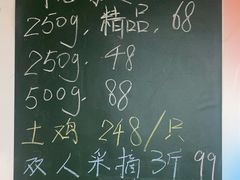 250g，精品，68
250g. 48
500g. 88
土鸡 248/只
双人采摘3斤99